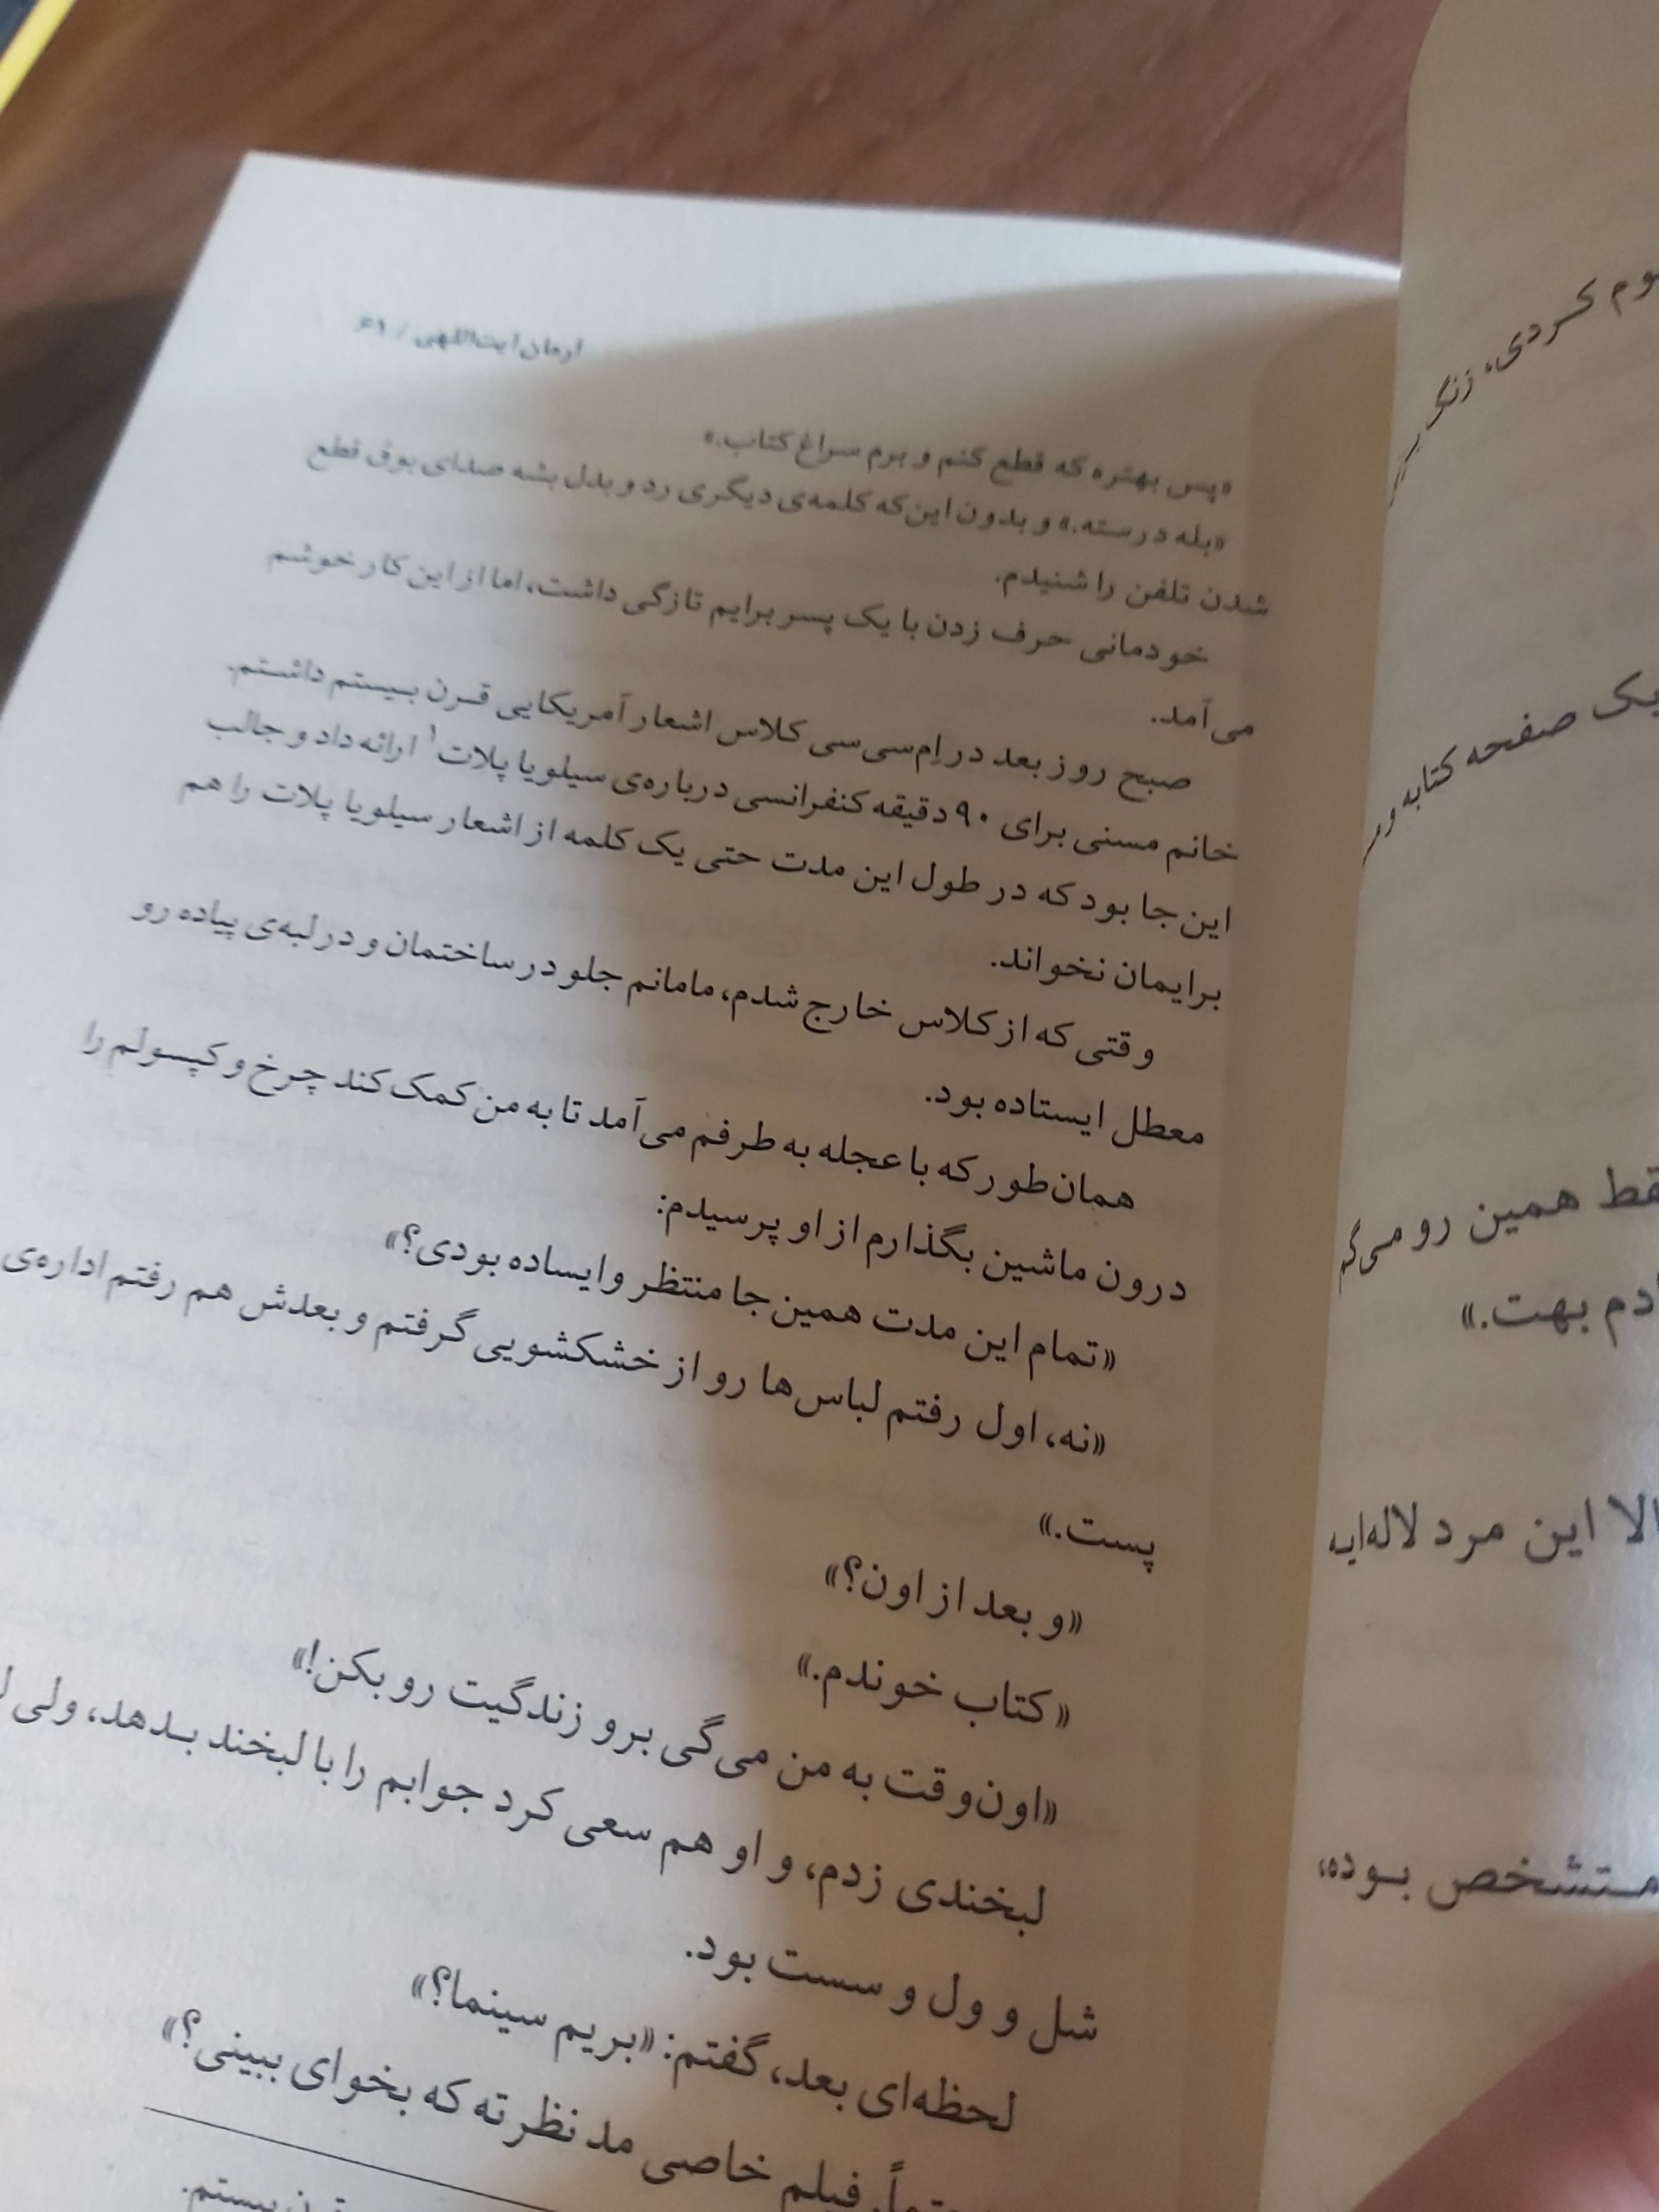 آرمان آیت‌اللهی / ۶۹
«پس بهتره که قطع کنم و برم سراغ کتاب.»
«بله درسته.» و بدون این‌که کلمه‌ی دیگری رد و بدل بشه صدای بوق قطع
شدن تلفن را شنیدم.
خودمانی حرف زدن با یک پسر برایم تازگی داشت، اما از این کار خوشم
می‌آمد.
صبح روز بعد در اِم‌سی‌سی کلاس اشعار آمریکایی قرن بیستم داشتم.
خانم مسنی برای ۹۰ دقیقه کنفرانسی درباره‌ی سیلویا پلات۱ ارائه داد و جالب
این جا بود که در طول این مدت حتی یک کلمه از اشعار سیلویا پلات را هم
برایمان نخواند.
وقتی که از کلاس خارج شدم، مامانم جلو در ساختمان و در لبه‌ی پیاده رو
معطل ایستاده بود.
همان‌طور که با عجله به طرفم می‌آمد تا به من کمک کند چرخ و کپسولم را
درون ماشین بگذارم از او پرسیدم:
«تمام این مدت همین جا منتظر وایساده بودی؟»
«نه، اول رفتم لباس‌ها رو از خشکشویی گرفتم و بعدش هم رفتم اداره‌ی
پست.»
«و بعد از اون؟»
«کتاب خوندم.»
«اون‌وقت به من می‌گی برو زندگیت رو بکن!»
لبخندی زدم، و او هم سعی کرد جوابم را با لبخند بدهد، ولی
شل و ول و سست بود.
لحظه‌ای بعد، گفتم: «بریم سینما؟»
فیلم خاصی مد نظرته که بخوای ببینی؟»
بیستم.
کردی، زنگ
یک صفحه کتابه
همین رو
بهت.»
این مرد لاله‌ایه
بوده،